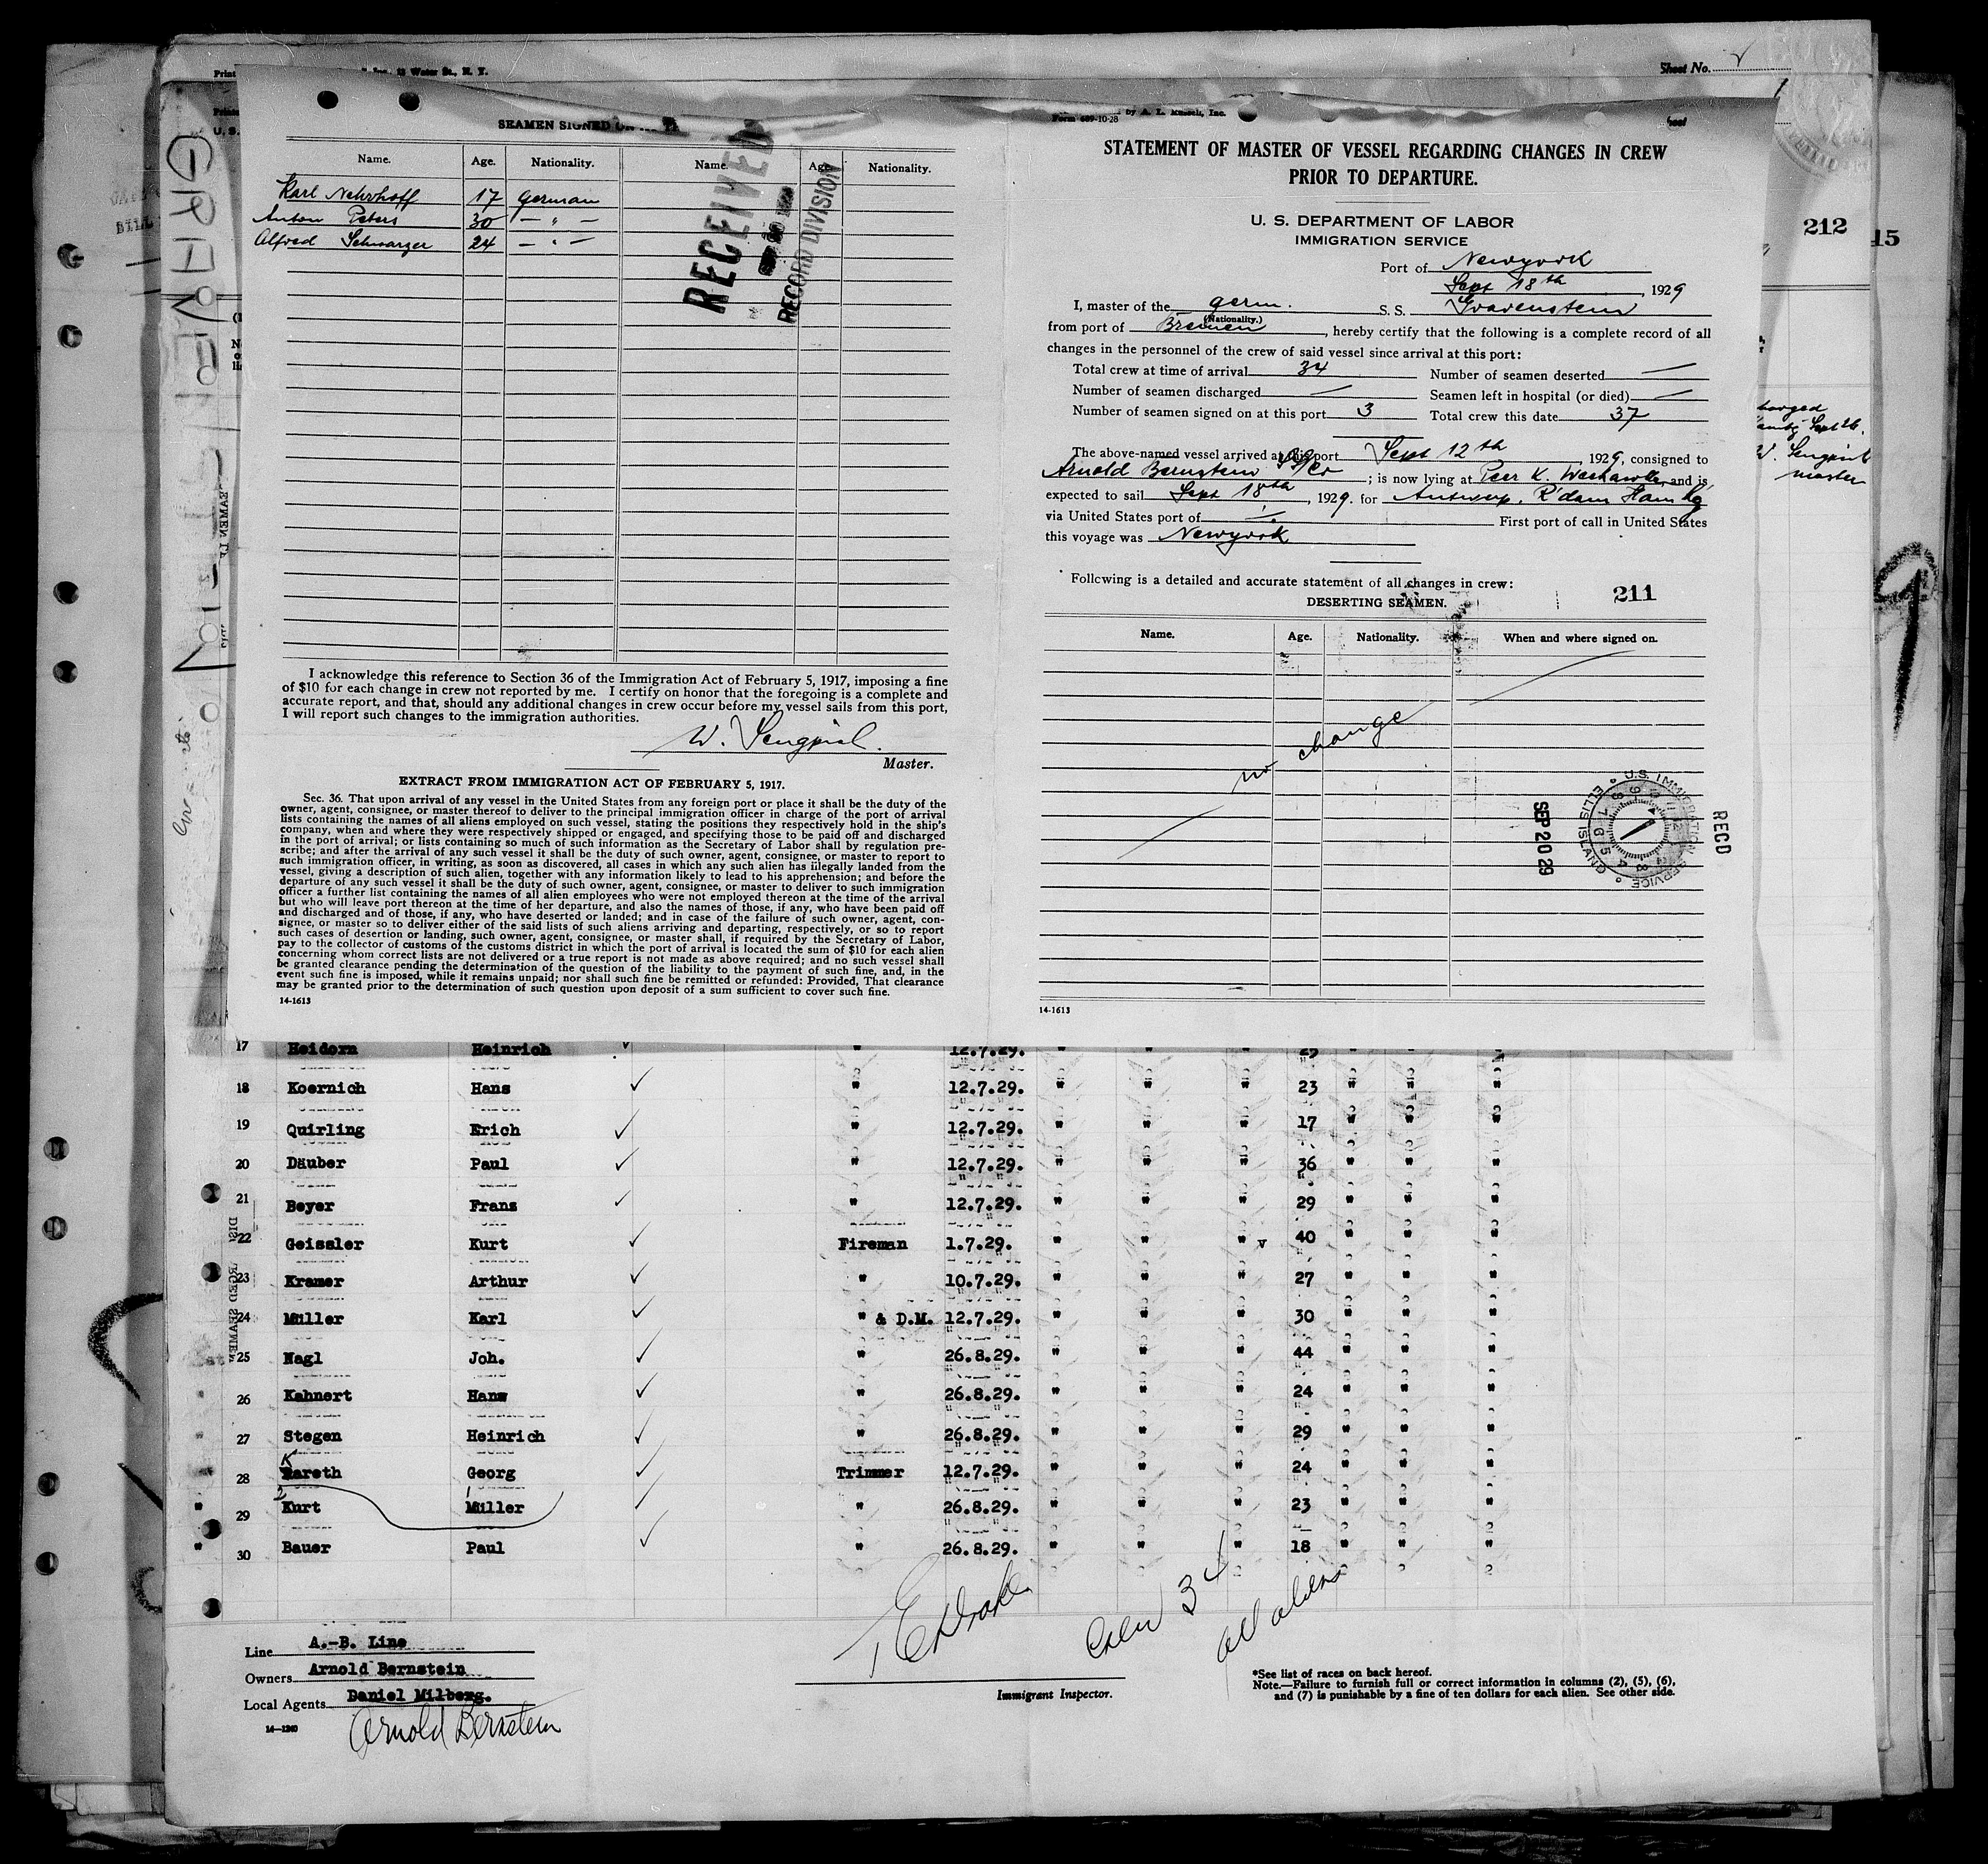 Sheet No.
212
15
SEAMEN SIGNED ON
Name. Age. Nationality. Name. Age. Nationality.
Karl Nehrhoff 17 german
Anton Peters 30 — " —
Alfred Schwarzer 24 — " —
RECEIVED
RECORD DIVISION
I acknowledge this reference to Section 36 of the Immigration Act of February 5, 1917, imposing a fine
of $10 for each change in crew not reported by me. I certify on honor that the foregoing is a complete and
accurate report, and that, should any additional changes in crew occur before my vessel sails from this port,
I will report such changes to the immigration authorities.
W. Sengpiel.
Master.
EXTRACT FROM IMMIGRATION ACT OF FEBRUARY 5, 1917.
Sec. 36. That upon arrival of any vessel in the United States from any foreign port or place it shall be the duty of the
owner, agent, consignee, or master thereof to deliver to the principal immigration officer in charge of the port of arrival
lists containing the names of all aliens employed on such vessel, stating the positions they respectively hold in the ship's
company, when and where they were respectively shipped or engaged, and specifying those to be paid off and discharged
in the port of arrival; or lists containing so much of such information as the Secretary of Labor shall by regulation pre-
scribe; and after the arrival of any such vessel it shall be the duty of such owner, agent, consignee, or master to report to
such immigration officer, in writing, as soon as discovered, all cases in which any such alien has illegally landed from the
vessel, giving a description of such alien, together with any information likely to lead to his apprehension; and before the
departure of any such vessel it shall be the duty of such owner, agent, consignee, or master to deliver to such immigration
officer a further list containing the names of all alien employees who were not employed thereon at the time of the arrival
but who will leave port thereon at the time of her departure, and also the names of those, if any, who have been paid off
and discharged and of those, if any, who have deserted or landed; and in case of the failure of such owner, agent, con-
signee, or master so to deliver either of the said lists of such aliens arriving and departing, respectively, or so to report
such cases of desertion or landing, such owner, agent, consignee, or master shall, if required by the Secretary of Labor,
pay to the collector of customs of the customs district in which the port of arrival is located the sum of $10 for each alien
concerning whom correct lists are not delivered or a true report is not made as above required; and no such vessel shall
be granted clearance pending the determination of the question of the liability to the payment of such fine, and, in the
event such fine is imposed, while it remains unpaid; nor shall such fine be remitted or refunded: Provided, That clearance
may be granted prior to the determination of such question upon deposit of a sum sufficient to cover such fine.
14-1613
Form 689-10-28 by A. L. Russell, Inc.
STATEMENT OF MASTER OF VESSEL REGARDING CHANGES IN CREW
PRIOR TO DEPARTURE.
U. S. DEPARTMENT OF LABOR
IMMIGRATION SERVICE
Port of Newyork
Sept 18th, 1929
I, master of the germ. S. S. Gravenstein
(Nationality.)
from port of Bremen, hereby certify that the following is a complete record of all
changes in the personnel of the crew of said vessel since arrival at this port:
Total crew at time of arrival 34 Number of seamen deserted —
Number of seamen discharged — Seamen left in hospital (or died) —
Number of seamen signed on at this port 3 Total crew this date 37
The above-named vessel arrived at this port Sept 12th, 1929, consigned to
Arnold Bernstein SS/Co; is now lying at Peer K. Weehawken, and is
expected to sail Sept 18th, 1929. for Antwerp, R'dam Hambg
via United States port of —/. First port of call in United States
this voyage was Newyork
Following is a detailed and accurate statement of all changes in crew:
211
DESERTING SEAMEN.
Name. Age. Nationality. When and where signed on.
no change
SEP 20 29
U.S. IMMIGRATION SERVICE ELLIS ISLAND
RECD
14-1613
W. Sengpiel
master
17 Heidorn Heinrich " 12.7.29. " " " 25 " " "
18 Koernich Hans " 12.7.29. " " " 23 " " "
19 Quirling Erich " 12.7.29. " " " 17 " " "
20 Däuber Paul " 12.7.29. " " " 36 " " "
21 Beyer Franz " 12.7.29. " " " 29 " " "
22 Geissler Kurt Fireman 1.7.29. " " " v 40 " " "
23 Kramer Arthur " 10.7.29. " " " 27 " " "
24 Müller Karl " & D.M. 12.7.29. " " " 30 " " "
25 Nagl Joh. " 26.8.29. " " " 44 " " "
26 Kahnert Hans " 26.8.29. " " " 24 " " "
27 Stegen Heinrich " 26.8.29. " " " 29 " " "
28 Kareth Georg Trimmer 12.7.29. " " " 24 " " "
" 29 Kurt Müller " 26.8.29. " " " 23 " " "
" 30 Bauer Paul " 26.8.29. " " " 18 " " "
Crew 34
all aliens
Line A.-B. Line
Owners Arnold Bernstein
Local Agents Daniel Milberg.
14-1240
Arnold Bernstein
Immigrant Inspector.
*See list of races on back hereof.
Note.—Failure to furnish full or correct information in columns (2), (5), (6),
and (7) is punishable by a fine of ten dollars for each alien. See other side.
GRAVENSTEIN